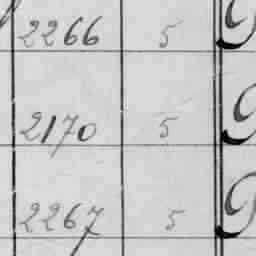 2266 5
2170 5
2267 5